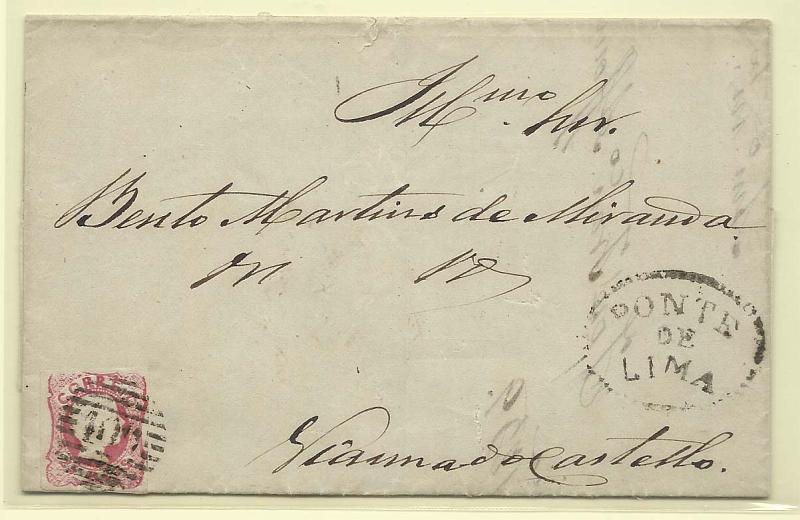 Illmo. Snr.
Bento Martins de Miranda
M
PONTE
DE
LIMA
CORRE
10
Vianna do Castello.